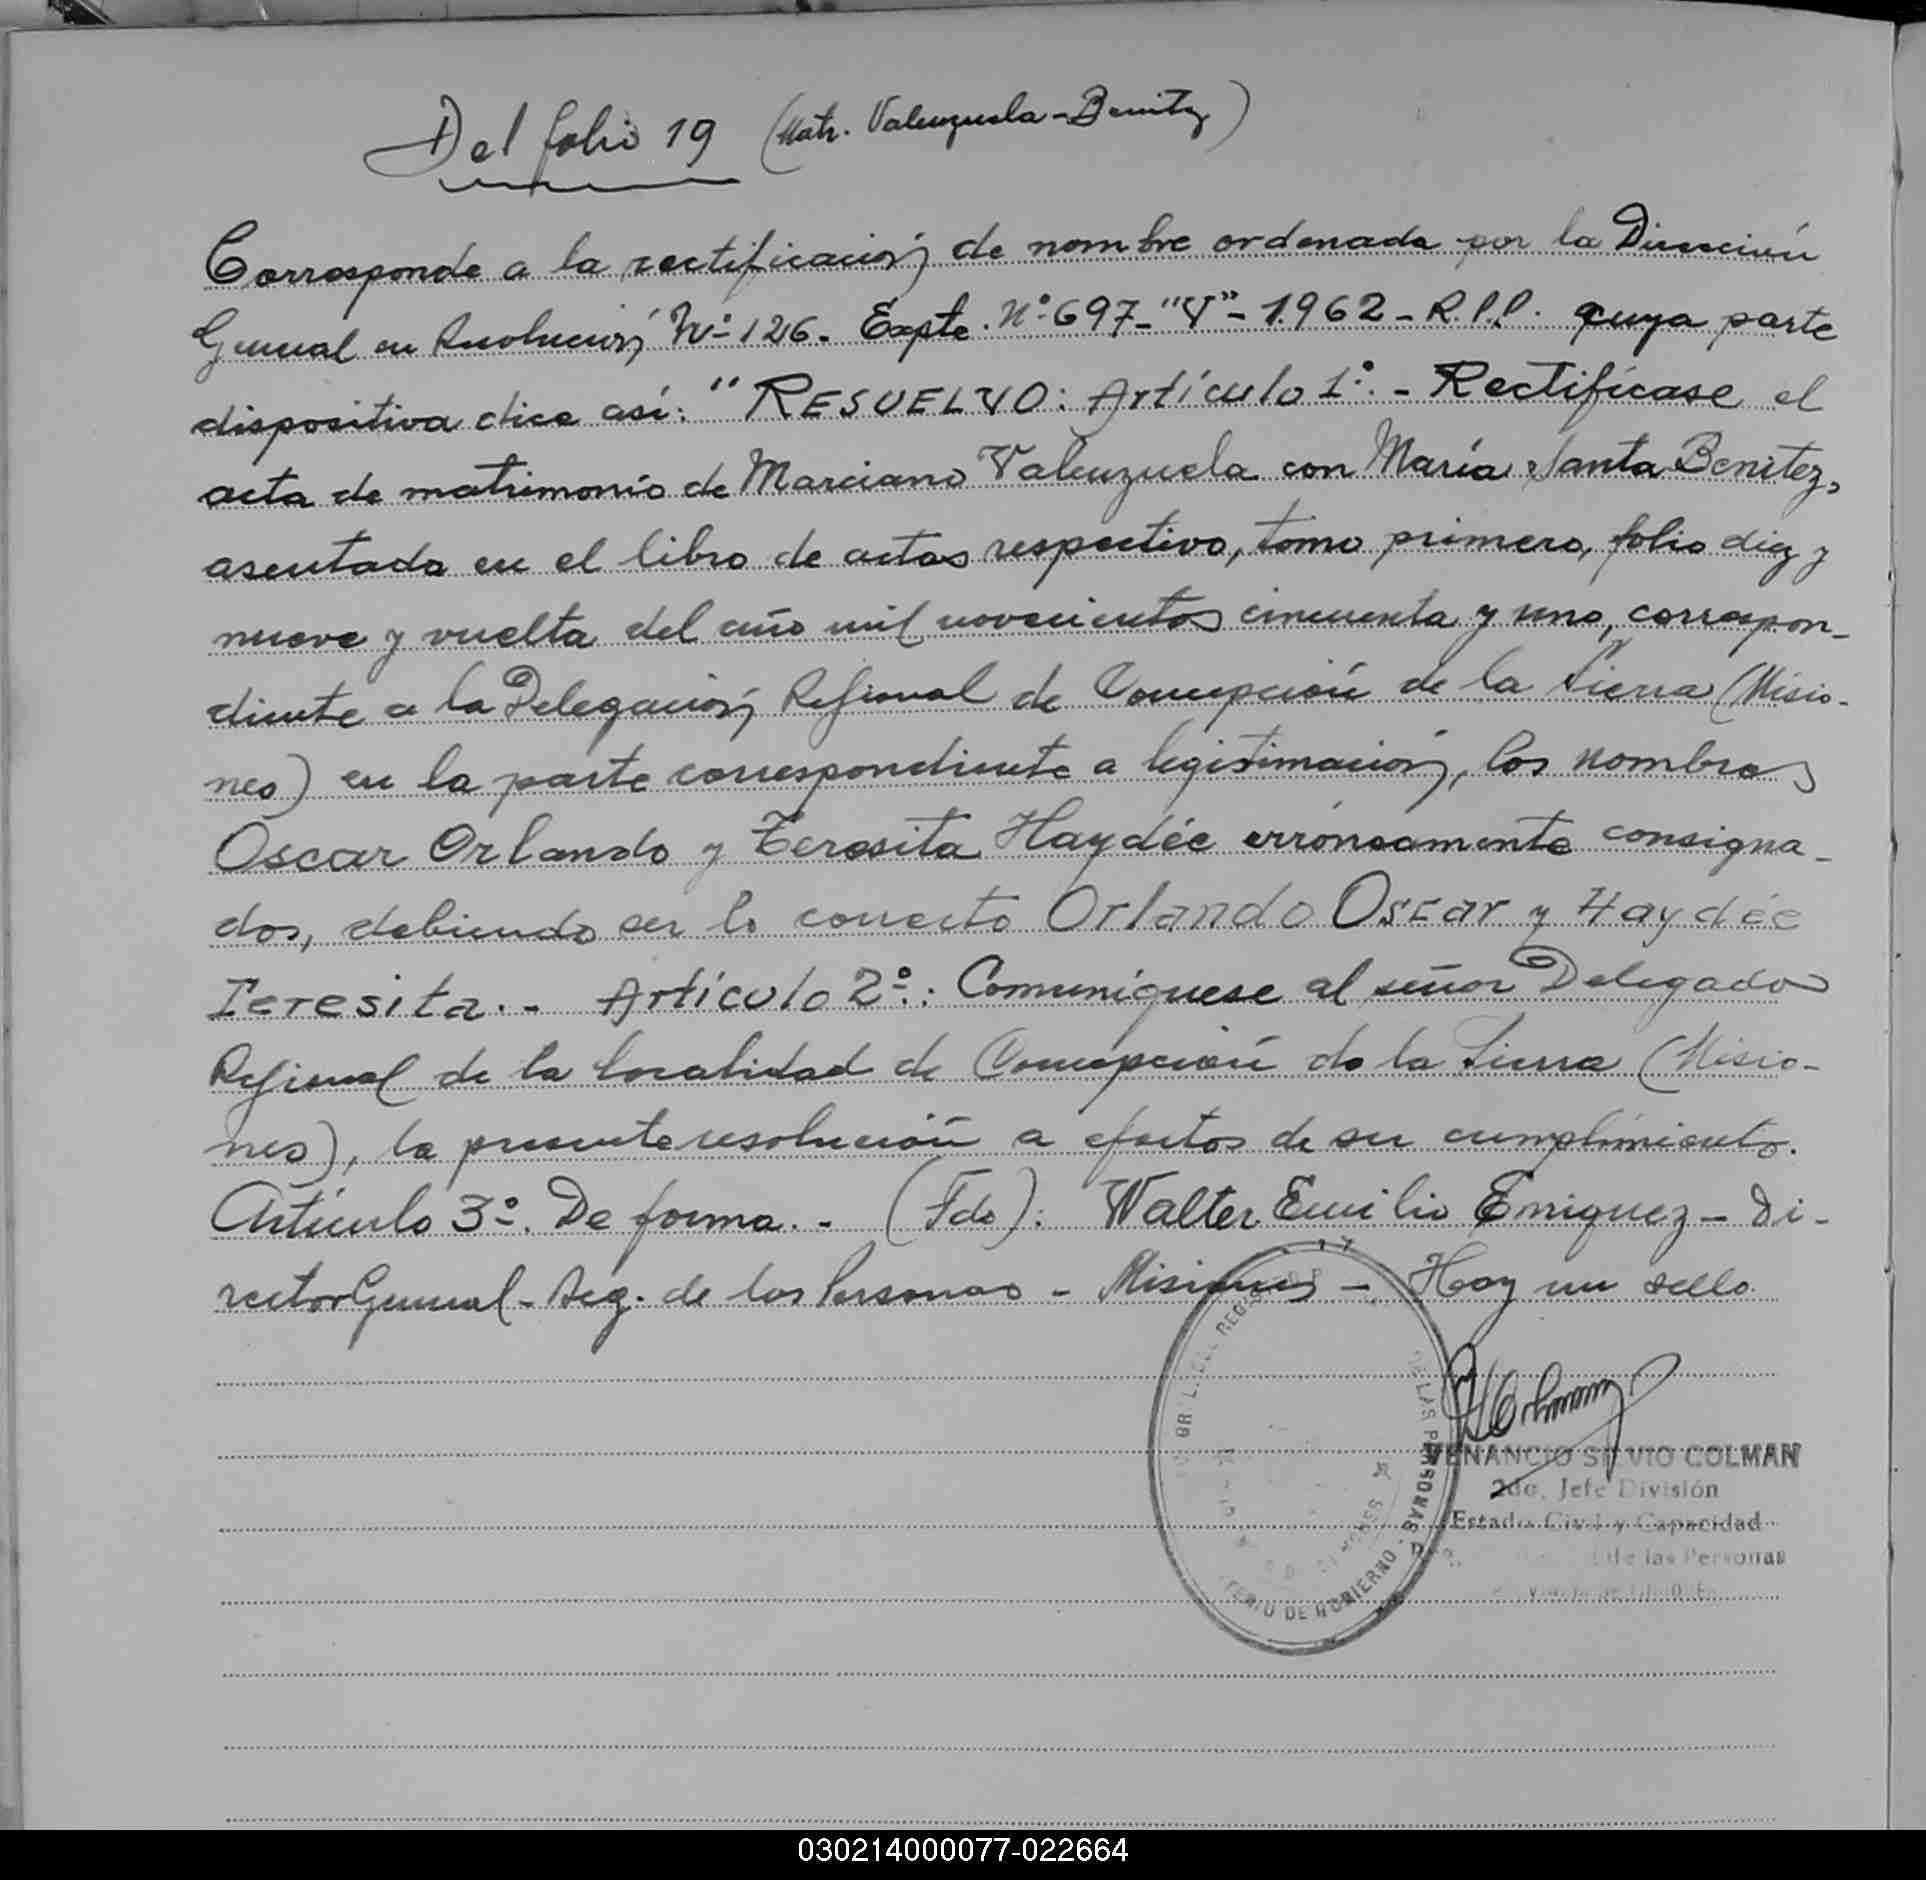 Del folio 19 (Matr. Valenzuela-Benitez)
Corresponde a la rectificación de nombre ordenada por la Dirección
General en Resolución Nº 126. Expte. Nº 697-"V"-1.962-R.P.P. cuya parte
dispositiva dice así: "RESUELVO: Artículo 1º.- Rectifícase el
acta de matrimonio de Marciano Valenzuela con María Santa Benitez,
asentada en el libro de actas respectivo, tomo primero, folio diez y
nueve y vuelta del año mil novecientos cincuenta y uno, correspon-
diente a la Delegación Regional de Concepción de la Sierra (Misio-
nes) en la parte correspondiente a legitimación, los nombres
Oscar Orlando y Teresita Haydée erróneamente consigna-
dos, debiendo ser lo correcto Orlando Oscar y Haydée
Teresita.- Artículo 2º.: Comuníquese al señor Delegado
Regional de la localidad de Concepción de la Sierra (Misio-
nes), la presente resolución a efectos de su cumplimiento.
Artículo 3º. De forma.- (Fdo): Walter Emilio Enriquez - Di-
rector General - Reg. de las Personas - Misiones - Hay un sello
DE LAS PERSONAS
DE GOBIERNO
VENANCIO SILVIO COLMAN
2do. Jefe División
Estado Civil y Capacidad
de las Personas
030214000077-022664